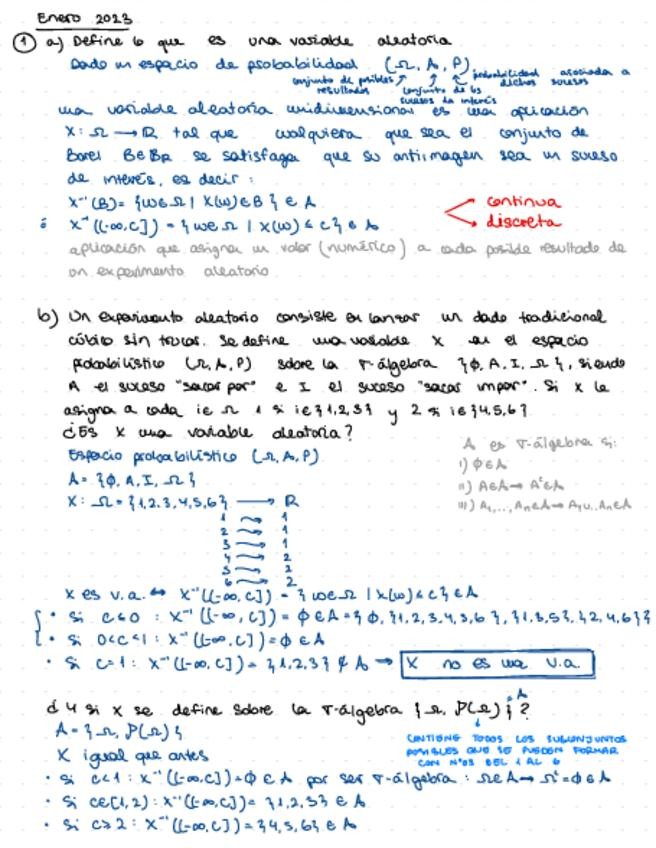 Enero 2023
① a) Define lo que es una variable aleatoria
Dado un espacio de probabilidad (Ω, A, P)
conjunto de posibles resultados
conjunto de los sucesos de interés
probabilidad asociada a dichos sucesos
una variable aleatoria unidimensional es una aplicación
X: Ω → R tal que cualquiera que sea el conjunto de
Borel B∈BR se satisfaga que su antiimagen sea un suceso
de interés, es decir:
X⁻¹(B) = {ω∈Ω | X(ω)∈B} ∈ A
ó X⁻¹((-∞,c]) = {ω∈Ω | X(ω) ≤ c} ∈ A
continua
discreta
aplicación que asigna un valor (numérico) a cada posible resultado de
un experimento aleatorio
b) Un experimento aleatorio consiste en lanzar un dado tradicional
cúbico sin trucar. Se define una variable X en el espacio
probabilístico (Ω, A, P) sobre la σ-álgebra {∅, A, I, Ω}, siendo
A el suceso "sacar par" e I el suceso "sacar impar". Si X le
asigna a cada i∈Ω 1 si i∈{1,2,3} y 2 si i∈{4,5,6}
¿Es X una variable aleatoria?
Espacio probabilístico (Ω, A, P)
A = {∅, A, I, Ω}
X: Ω = {1,2,3,4,5,6} → R
1 → 1
2 → 1
3 → 1
4 → 2
5 → 2
6 → 2
A es σ-álgebra si:
i) ∅∈A
ii) A∈A → Aᶜ∈A
iii) A₁,...,An∈A → A₁∪..An∈A
X es v.a. ↔ X⁻¹((-∞,c]) = {ω∈Ω | X(ω) ≤ c} ∈ A
· Si c≤0 : X⁻¹((-∞,c]) = ∅ ∈ A = {∅, {1,2,3,4,5,6}, {1,3,5}, {2,4,6}}
· Si 0<c<1 : X⁻¹((-∞,c]) = ∅ ∈ A
· Si c=1 : X⁻¹((-∞,c]) = {1,2,3} ∉ A → X no es una v.a.
¿Y si X se define sobre la σ-álgebra {Ω, P(Ω)}? A
A = {Ω, P(Ω)}
CONTIENE TODOS LOS SUBCONJUNTOS
POSIBLES QUE SE PUEDEN FORMAR
CON Nºos DEL 1 AL 6
X igual que antes
· Si c<1 : X⁻¹((-∞,c]) = ∅ ∈ A por ser σ-álgebra : Ω∈A → Ωᶜ=∅∈A
· Si c∈[1,2) : X⁻¹((-∞,c]) = {1,2,3} ∈ A
· Si c≥2 : X⁻¹((-∞,c]) = {4,5,6} ∈ A